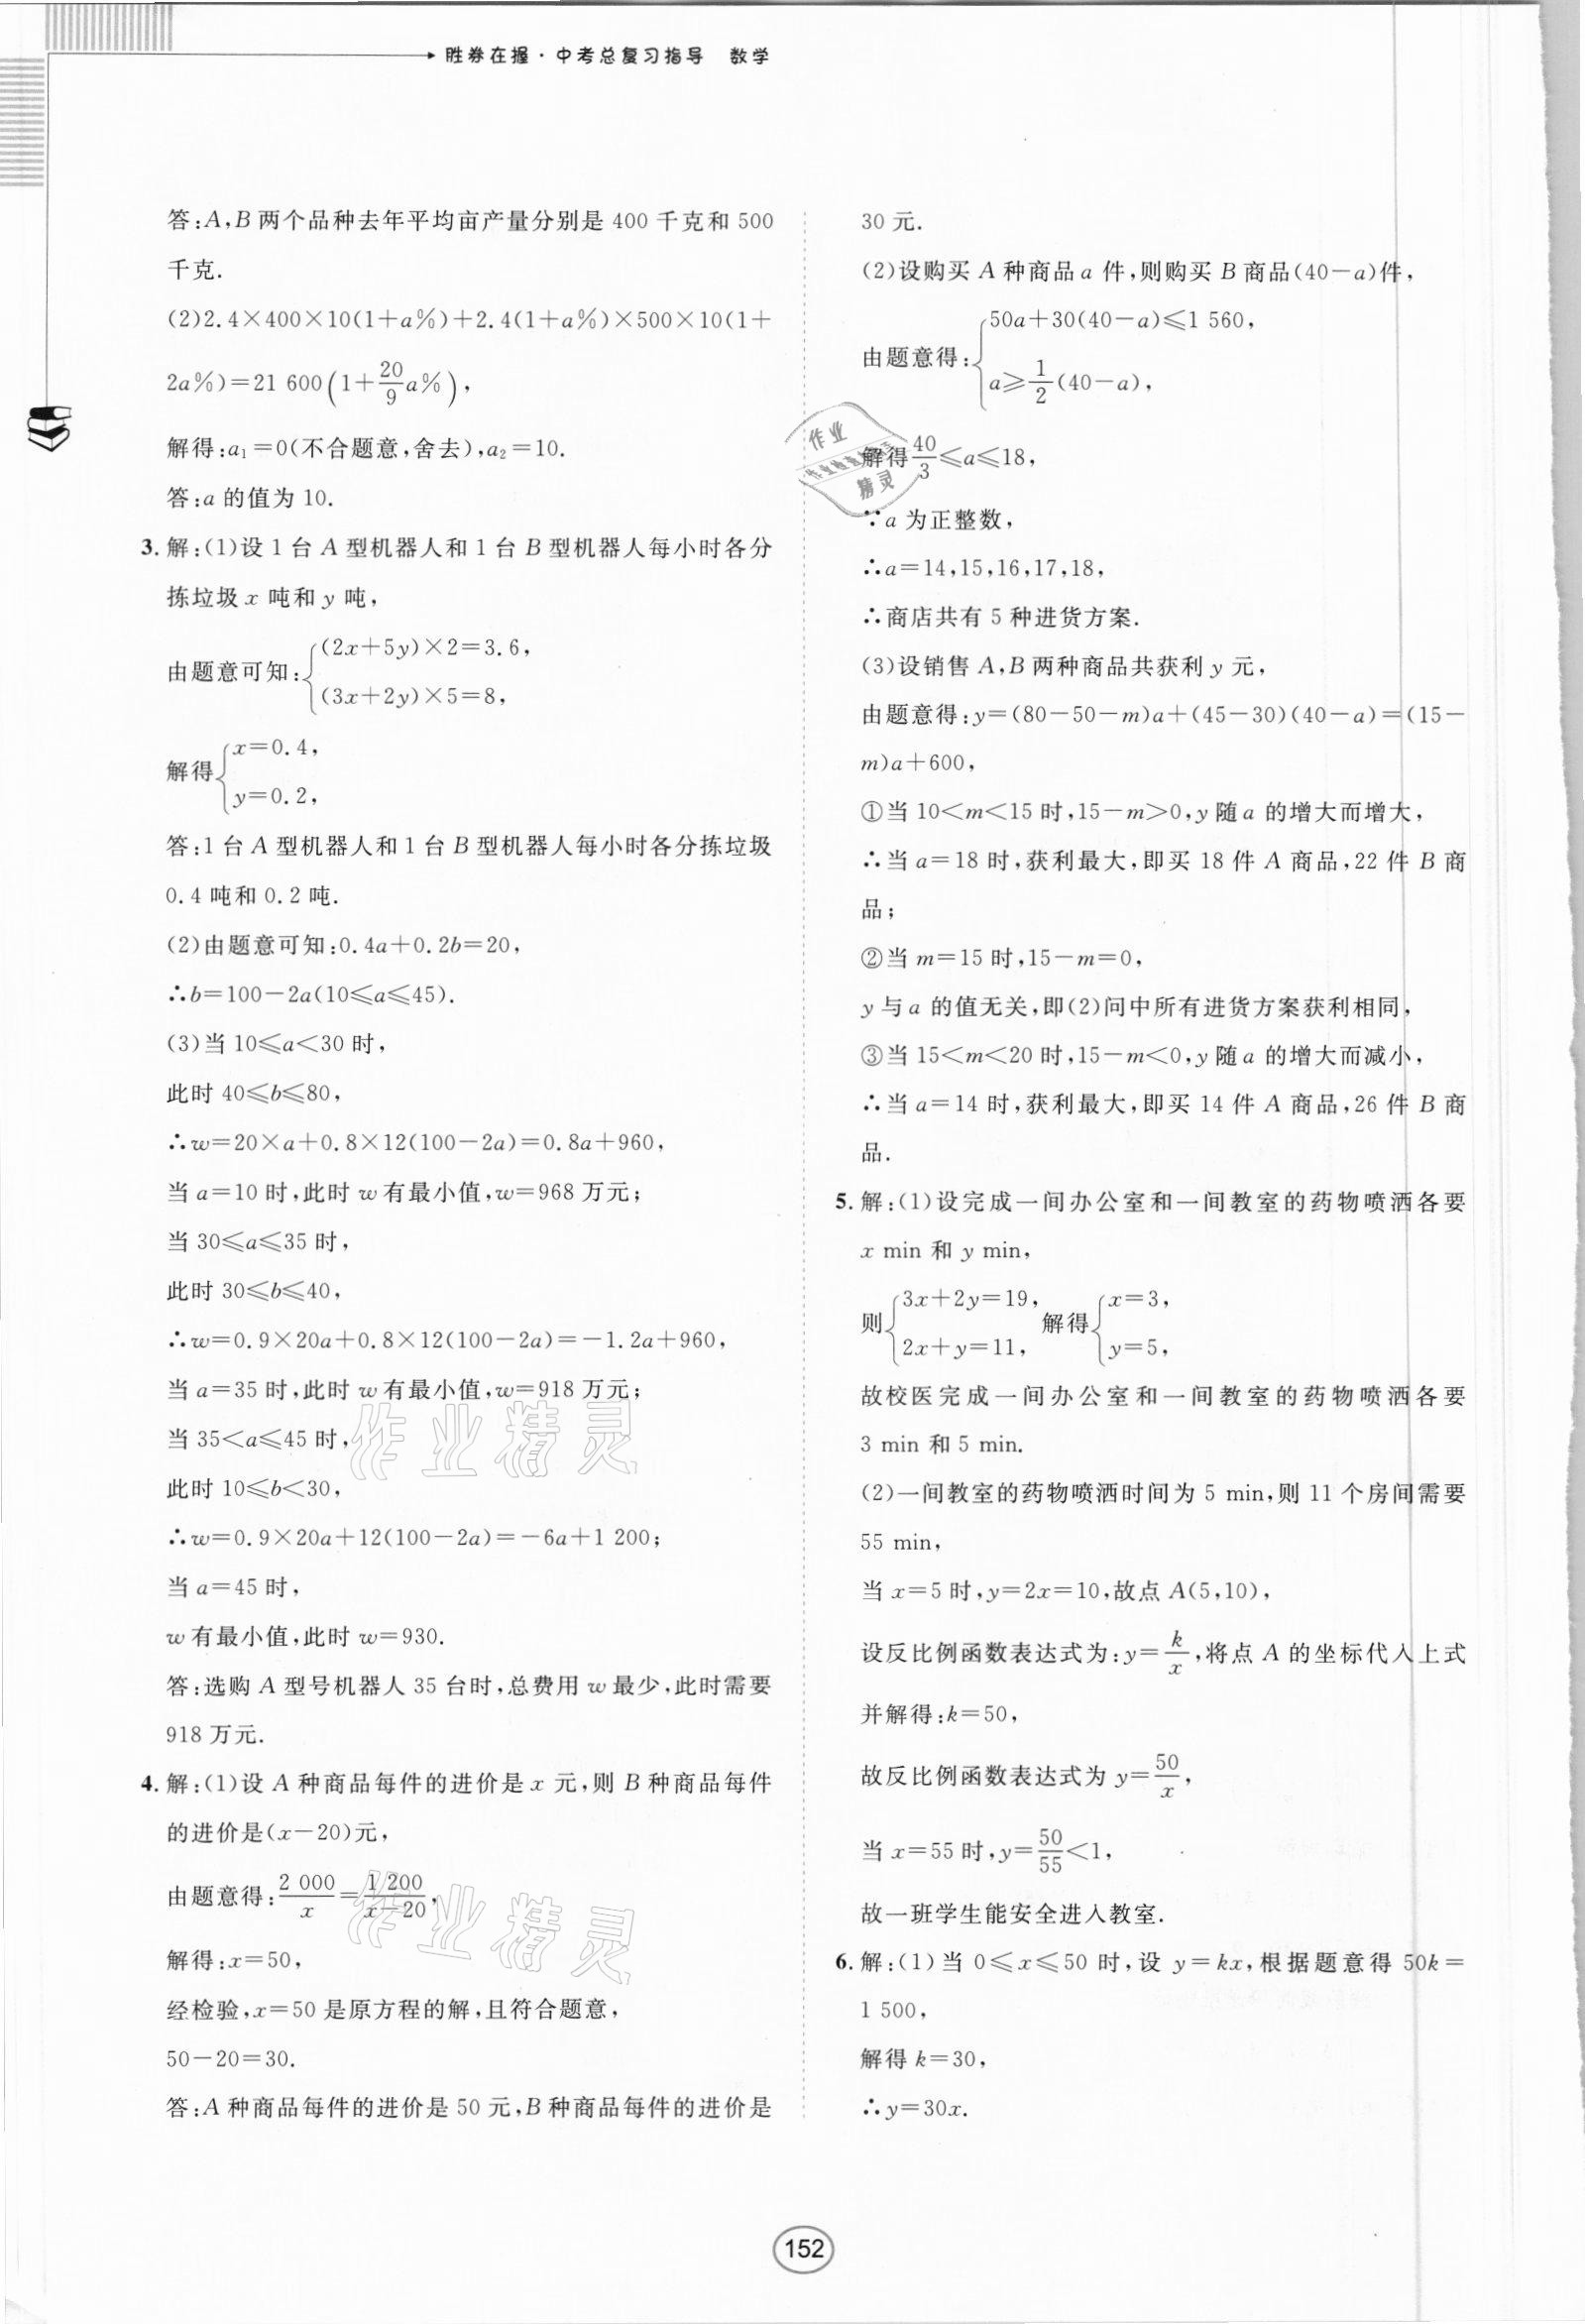 胜券在握·中考总复习指导　数学
答:A,B两个品种去年平均亩产量分别是400千克和500
千克.
(2)2.4×400×10(1+a%)+2.4(1+a%)×500×10(1+
2a%)=21 600(1+20/9a%),
解得:a₁=0(不合题意,舍去),a₂=10.
答:a的值为10.
3. 解:(1)设1台A型机器人和1台B型机器人每小时各分
拣垃圾x吨和y吨,
由题意可知:{(2x+5y)×2=3.6,
(3x+2y)×5=8,
解得{x=0.4,
y=0.2,
答:1台A型机器人和1台B型机器人每小时各分拣垃圾
0.4吨和0.2吨.
(2)由题意可知:0.4a+0.2b=20,
∴b=100-2a(10≤a≤45).
(3)当10≤a<30时,
此时40≤b≤80,
∴w=20×a+0.8×12(100-2a)=0.8a+960,
当a=10时,此时w有最小值,w=968万元;
当30≤a≤35时,
此时30≤b≤40,
∴w=0.9×20a+0.8×12(100-2a)=-1.2a+960,
当a=35时,此时w有最小值,w=918万元;
当35<a≤45时,
此时10≤b<30,
∴w=0.9×20a+12(100-2a)=-6a+1 200;
当a=45时,
w有最小值,此时w=930.
答:选购A型号机器人35台时,总费用w最少,此时需要
918万元.
4. 解:(1)设A种商品每件的进价是x元,则B种商品每件
的进价是(x-20)元,
由题意得:2 000/x=1 200/(x-20),
解得:x=50,
经检验,x=50是原方程的解,且符合题意,
50-20=30.
答:A种商品每件的进价是50元,B种商品每件的进价是
30元.
(2)设购买A种商品a件,则购买B商品(40-a)件,
由题意得:{50a+30(40-a)≤1 560,
a≥1/2(40-a),
解得40/3≤a≤18,
∵a为正整数,
∴a=14,15,16,17,18,
∴商店共有5种进货方案.
(3)设销售A,B两种商品共获利y元,
由题意得:y=(80-50-m)a+(45-30)(40-a)=(15-
m)a+600,
①当10<m<15时,15-m>0,y随a的增大而增大,
∴当a=18时,获利最大,即买18件A商品,22件B商
品;
②当m=15时,15-m=0,
y与a的值无关,即(2)问中所有进货方案获利相同,
③当15<m<20时,15-m<0,y随a的增大而减小,
∴当a=14时,获利最大,即买14件A商品,26件B商
品.
5. 解:(1)设完成一间办公室和一间教室的药物喷洒各要
x min和y min,
则{3x+2y=19,
2x+y=11, 解得{x=3,
y=5,
故校医完成一间办公室和一间教室的药物喷洒各要
3 min和5 min.
(2)一间教室的药物喷洒时间为5 min,则11个房间需要
55 min,
当x=5时,y=2x=10,故点A(5,10),
设反比例函数表达式为:y=k/x,将点A的坐标代入上式
并解得:k=50,
故反比例函数表达式为y=50/x,
当x=55时,y=50/55<1,
故一班学生能安全进入教室.
6. 解:(1)当0≤x≤50时,设y=kx,根据题意得50k=
1 500,
解得k=30,
∴y=30x.
作业
精灵
作业精灵
作业精灵
152